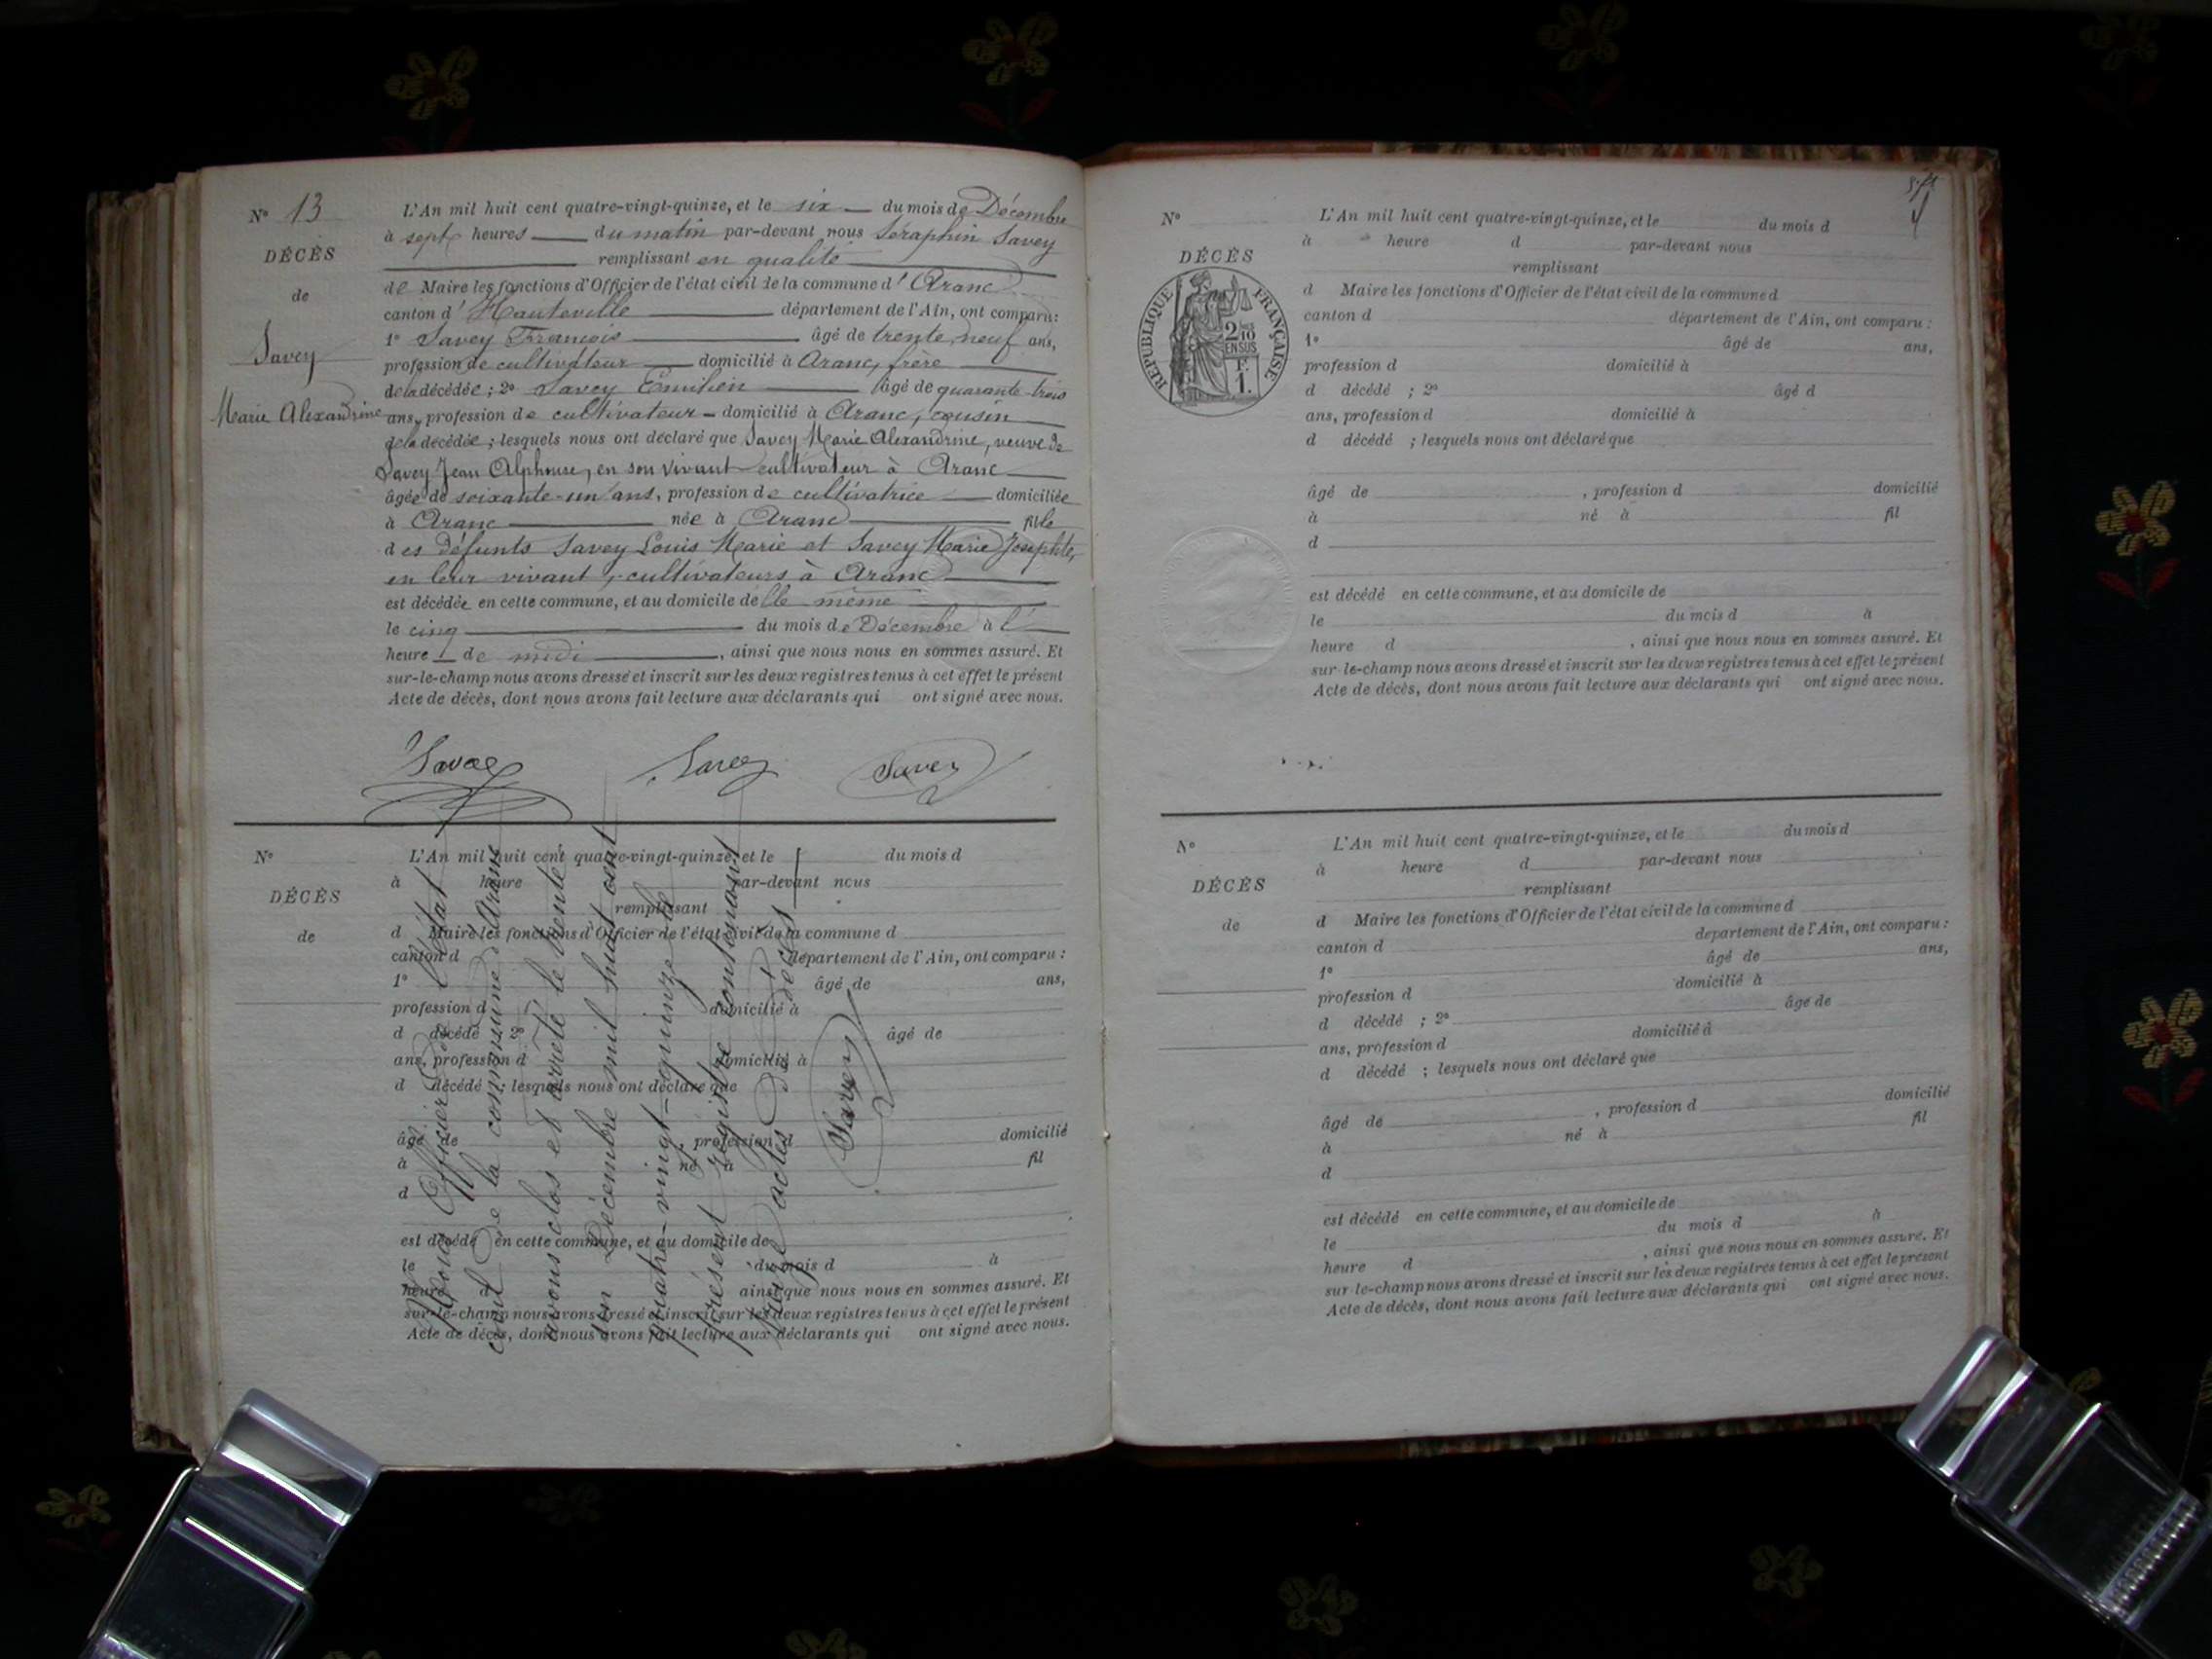 N° 13
DÉCÈS
de
Savey
Marie Alexandrine
L'An mil huit cent quatre-vingt-quinze, et le six du mois de Décembre
à sept heures du matin par-devant nous Séraphin Savey
remplissant en qualité
de Maire les fonctions d'Officier de l'état civil de la commune d'Aranc
canton d'Hauteville département de l'Ain, ont comparu:
1° Savey François âgé de trente neuf ans,
profession de cultivateur domicilié à Aranc, frère
de la décédée ; 2° Savey Émilien âgé de quarante trois
ans, profession de cultivateur domicilié à Aranc, cousin
de la décédée ; lesquels nous ont déclaré que Savey Marie Alexandrine, veuve de
Savey Jean Alphonse, en son vivant cultivateur à Aranc
âgée de soixante-un ans, profession de cultivatrice domiciliée
à Aranc née à Aranc fille
des défunts Savey Louis Marie et Savey Marie Josephte,
en leur vivant, cultivateurs à Aranc
est décédée en cette commune, et au domicile de lle même
le cinq du mois de Décembre à l'
heure de midi , ainsi que nous nous en sommes assuré. Et
sur-le-champ nous avons dressé et inscrit sur les deux registres tenus à cet effet le présent
Acte de décès, dont nous avons fait lecture aux déclarants qui ont signé avec nous.
Savey Savey Savey
N°
DÉCÈS
de
L'An mil huit cent quatre-vingt-quinze, et le du mois d
à heure par-devant nous
remplissant
d Maire les fonctions d'Officier de l'état civil de la commune d
canton d département de l'Ain, ont comparu :
1° âgé de ans,
profession d domicilié à
d décédé 2° âgé de
ans, profession d domicilié à
d décédé ; lesquels nous ont déclaré que
âgé de , profession d domicilié
à né à fil
d
est décédé en cette commune, et au domicile de
le du mois d à
heure d ainsi que nous nous en sommes assuré. Et
sur-le-champ nous avons dressé et inscrit sur les deux registres tenus à cet effet le présent
Acte de décès, dont nous avons fait lecture aux déclarants qui ont signé avec nous.
Nous Officier de l'état
civil de la commune d'Aranc
avons clos et arrêté le trente
un Décembre mil huit cent
quatre-vingt-quinze le
présent registre contenant
treize actes de décès
Savey
N°
DÉCÈS
RÉPUBLIQUE FRANÇAISE
2/10
EN SUS
F.
1.
L'An mil huit cent quatre-vingt-quinze, et le du mois d
à heure d par-devant nous
remplissant
d Maire les fonctions d'Officier de l'état civil de la commune d
canton d département de l'Ain, ont comparu :
1° âgé de ans,
profession d domicilié à
d décédé ; 2° âgé d
ans, profession d domicilié à
d décédé ; lesquels nous ont déclaré que
âgé de , profession d domicilié
à né à fil
d
est décédé en cette commune, et au domicile de
le du mois d à
heure d , ainsi que nous nous en sommes assuré. Et
sur-le-champ nous avons dressé et inscrit sur les deux registres tenus à cet effet le présent
Acte de décès, dont nous avons fait lecture aux déclarants qui ont signé avec nous.
N°
DÉCÈS
de
L'An mil huit cent quatre-vingt-quinze, et le du mois d
à heure d par-devant nous
remplissant
d Maire les fonctions d'Officier de l'état civil de la commune d
canton d département de l'Ain, ont comparu :
1° âgé de ans,
profession d domicilié à
d décédé ; 2° âge de
ans, profession d domicilié à
d décédé ; lesquels nous ont déclaré que
âgé de , profession d domicilié
à né à fil
d
est décédé en cette commune, et au domicile de
le du mois d à
heure d , ainsi que nous nous en sommes assuré. Et
sur-le-champ nous avons dressé et inscrit sur les deux registres tenus à cet effet le présent
Acte de décès, dont nous avons fait lecture aux déclarants qui ont signé avec nous.